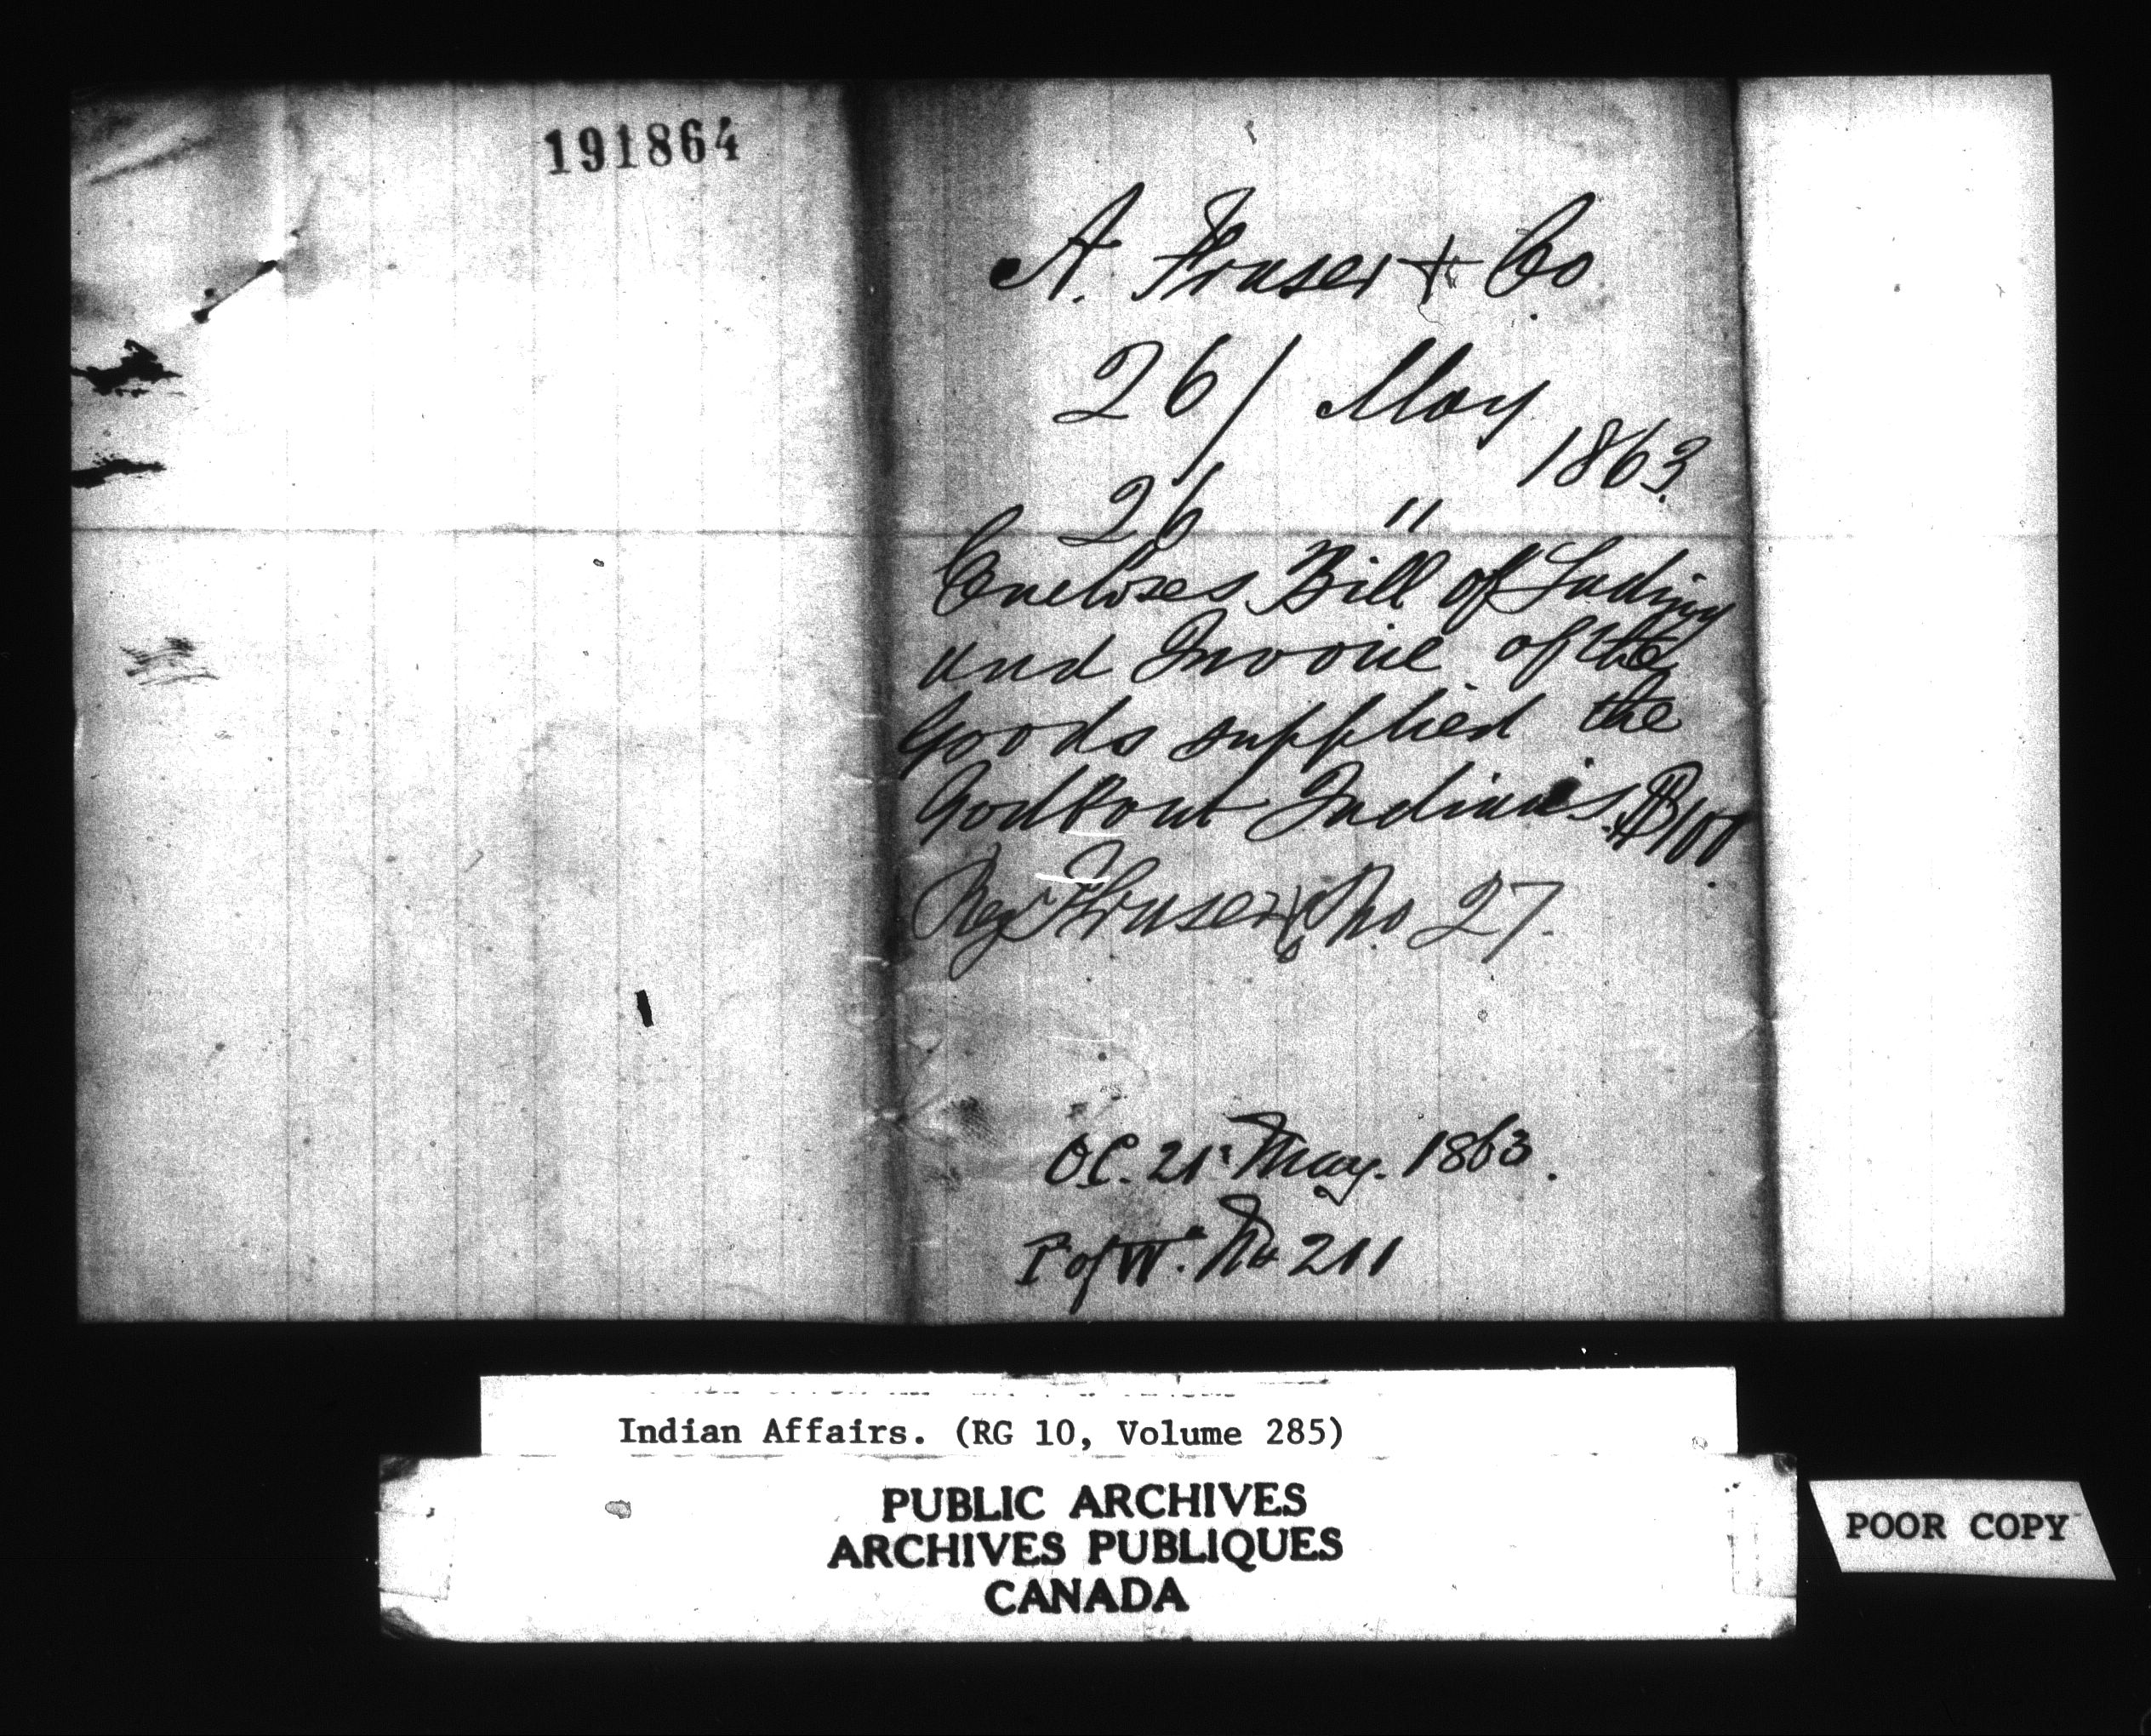 191864
A. Fraser & Co.
26/ May 1863.
26 "
Encloses Bill of Lading
and Invoice of the
Goods supplied the
Godbout Indians. $100
Regd Fraser & Co No 27.
O.C. 21st May. 1863.
P of Wt. No 211
Indian Affairs. (RG 10, Volume 285)
PUBLIC ARCHIVES
ARCHIVES PUBLIQUES
CANADA
POOR COPY